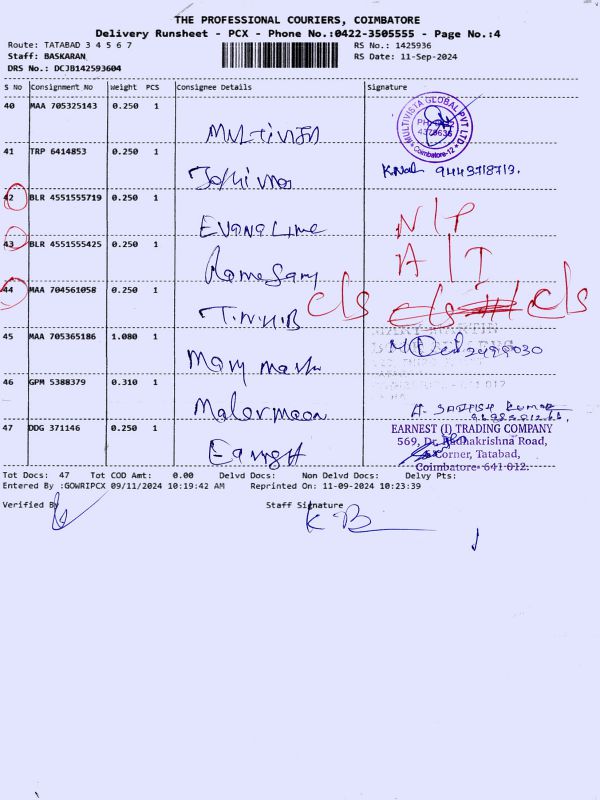 THE PROFESSIONAL COURIERS, COIMBATORE
Delivery Runsheet - PCX - Phone No.:0422-3505555 - Page No.:4
Route: TATABAD 3 4 5 6 7
RS No.: 1425936
Staff: BASKARAN
RS Date: 11-Sep-2024
DRS No.: DCJB142593604
S No Consignment No Weight PCS Consignee Details Signature
40 MAA 705325143 0.250 1
MULTIVISTA GLOBAL PVT LTD
Coimbatore-12
41 TRP 6414853 0.250 1
9443718713.
42 BLR 4551555719 0.250 1
EVangLine N/P
43 BLR 4551555425 0.250 1
Ramesamy A/I
44 MAA 704561058 0.250 1
c/s c/s
45 MAA 705365186 1.080 1
46 GPM 5388379 0.310 1
47 DDG 371146 0.250 1
EARNEST (I) TRADING COMPANY
569, Dr. Radhakrishna Road,
Corner, Tatabad,
Coimbatore- 641 012.
Tot Docs: 47 Tot COD Amt: 0.00 Delvd Docs: Non Delvd Docs: Delvy Pts:
Entered By :GOWRIPCX 09/11/2024 10:19:42 AM Reprinted On: 11-09-2024 10:23:39
Verified By Staff Signature
K B